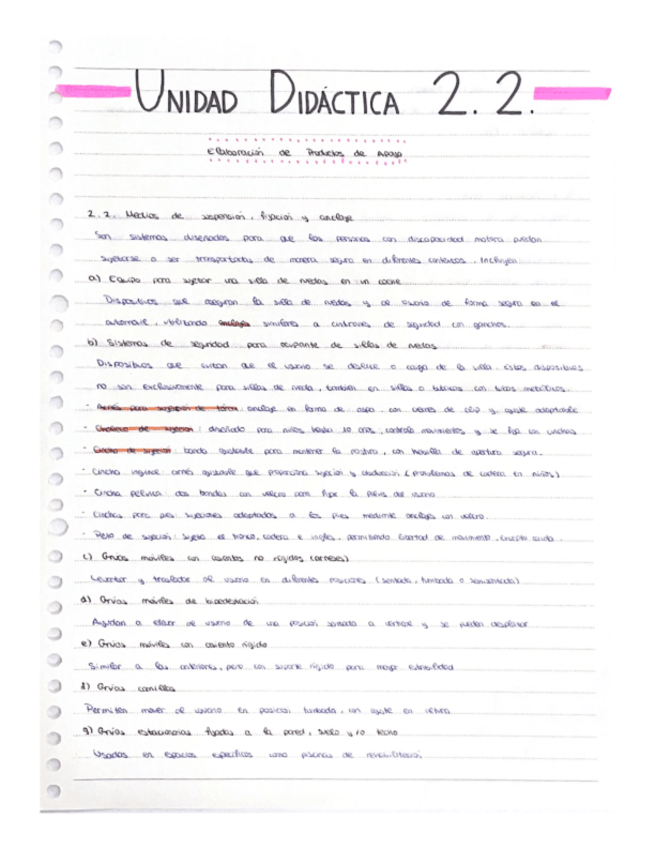 UNIDAD DIDÁCTICA 2.2.
Elaboración de Productos de Apoyo
2.2. Medios de suspensión, fijación y anclaje
Son sistemas diseñados para que las personas con discapacidad motora puedan
sujetarse o ser transportadas de manera segura en diferentes contextos. Incluyen:
a) Equipo para sujetar una silla de ruedas en un coche
Dispositivos que aseguran la silla de ruedas y al usuario de forma segura en el
automóvil, utilizando anclajes similares a cinturones de seguridad con ganchos.
b) Sistemas de seguridad para ocupante de sillas de ruedas
Dispositivos que evitan que el usuario se deslice o caiga de la silla. Estos dispositivos
no son exclusivamente para sillas de rueda, también en sillas o con tubos metálicos.
- Arnés para sujeción de tórax: anclaje en forma de aspa, con cierres de clip y ajuste adaptable
- Chaleco de sujeción: diseñado para niños hasta 10 años, controla movimientos y se fija con cinchas
- Cincho de sujeción: banda ajustable para mantener la postura, con hebilla de apertura segura.
- Cincha inguinal: arnés ajustable que proporciona sujeción y abducción (problemas de cadera en niños)
- Cincha pélvica: dos bandas con velcro para fijar la pelvis del usuario
- Cinchas para pies: sujeciones adaptadas a los pies mediante anclajes con velcro.
- Peto de sujeción: sujeta el tronco, cadera e ingles, permitiendo libertad de movimiento,
c) Grúas móviles con asientos no rígidos (arneses)
Levantar y trasladar al usuario en diferentes posiciones (sentada, tumbada o semisentada)
d) Grúas móviles de bipedestación
Ayudan a elevar al usuario de una posición sentada a vertical y se pueden desplazar
e) Grúas móviles con asiento rígido
Similar a las anteriores, pero con soporte rígido para mayor estabilidad
f) Grúas camillas
Permiten mover al usuario en posición tumbada, con ajuste en altura
g) Grúas estacionarias fijadas a la pared, suelo y/o techo
Usadas en espacios específicos como piscinas de rehabilitación.